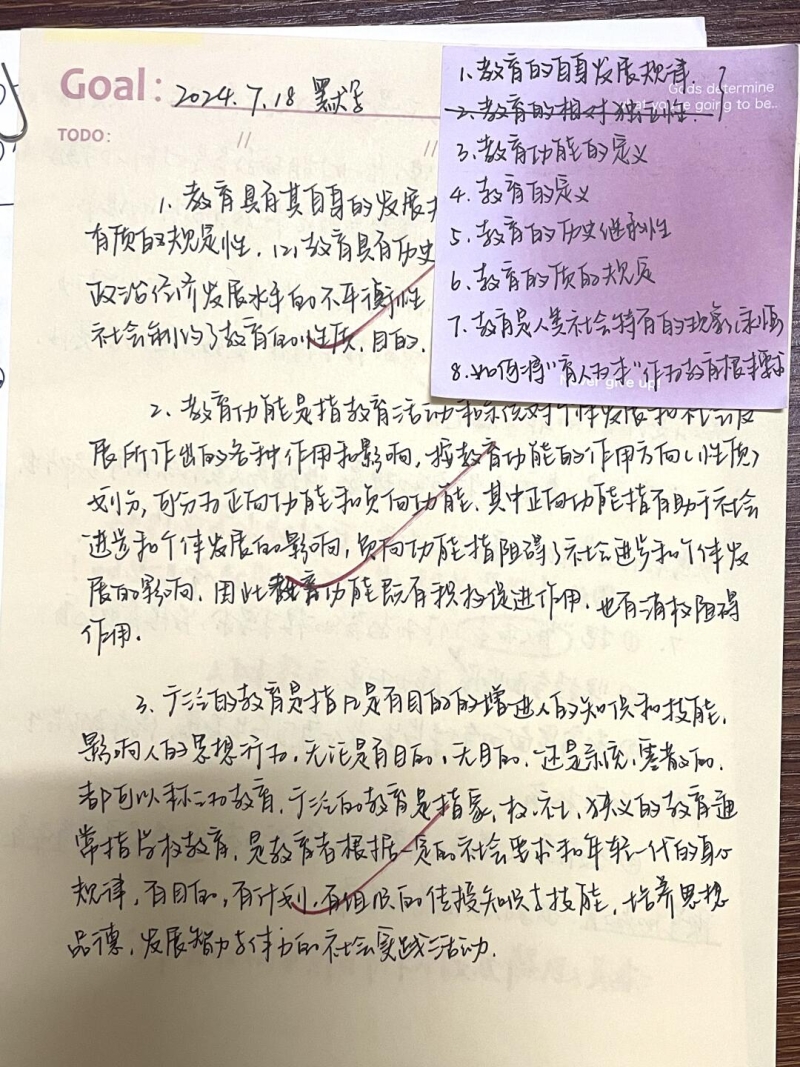 Goal: 2024.7.18 默写
TODO:
1. 教育具有其自身的发展
有质的规定性. (2) 教育具有历史
政治经济发展水平的不平衡性
社会制约了教育的性质. 目的.
2. 教育功能是指教育活动和系统对个体发展和社会发
展所作出的各种作用和影响, 按教育功能的作用方向(性质)
划分, 可分为正向功能和负向功能, 其中正向功能指有助于社会
进步和个体发展的影响, 负向功能指阻碍了社会进步和个体发
展的影响. 因此教育功能既有积极促进作用. 也有消极阻碍
作用.
3. 广泛的教育是指凡是有目的的增进人的知识和技能,
影响人的思想行为, 无论是有目的, 无目的, 还是系统, 零散的.
都可以称之为教育. 广泛的教育是指家, 校, 社, 狭义的教育通
常指学校教育, 是教育者根据一定的社会要求和年轻一代的身心
规律, 有目的, 有计划, 有组织的传授知识与技能, 培养思想
品德, 发展智力与体力的社会实践活动.
1. 教育的自身发展规律.
Gods determine
what you're going to be..
2. 教育的相对独立性.
3. 教育功能的定义
4. 教育的定义
5. 教育的历史继承性
6. 教育的质的规定
7. 教育是人类社会特有的现象
8. 如何将"育人为本"作为教育根本要求
Never give up!